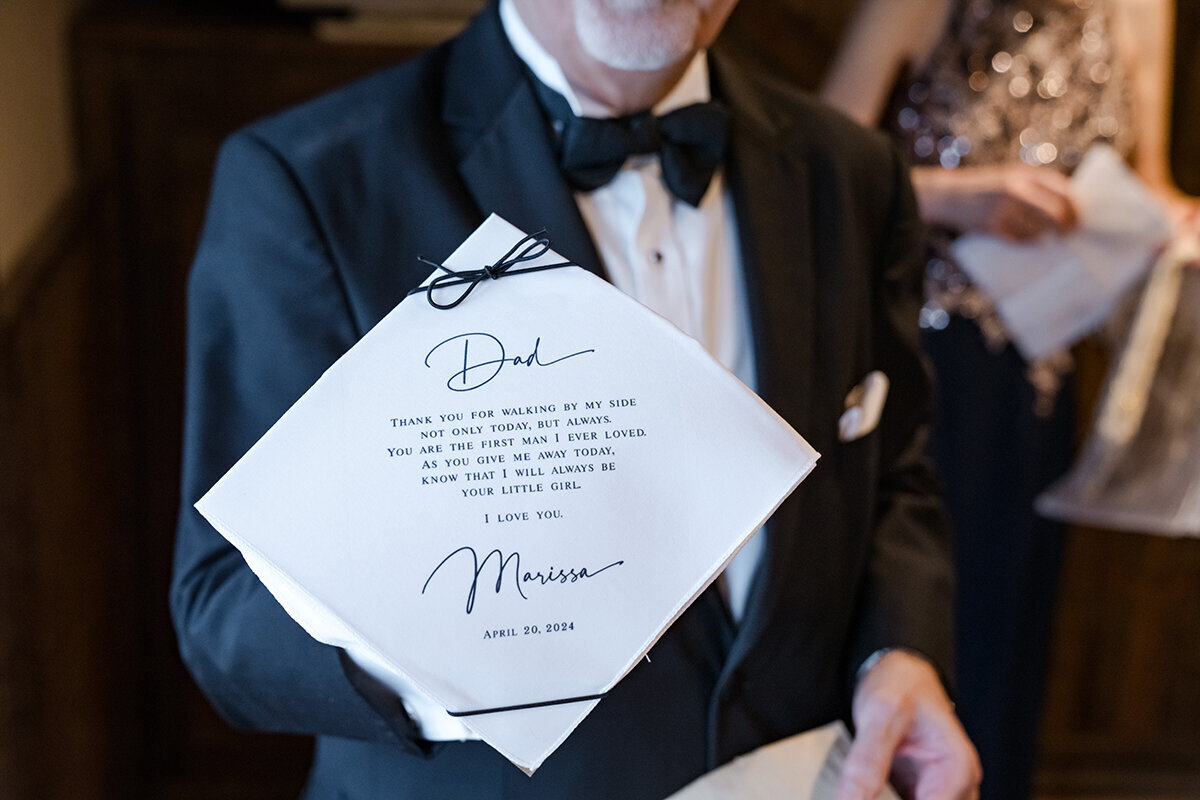 Dad
THANK YOU FOR WALKING BY MY SIDE
NOT ONLY TODAY, BUT ALWAYS.
YOU ARE THE FIRST MAN I EVER LOVED.
AS YOU GIVE ME AWAY TODAY,
KNOW THAT I WILL ALWAYS BE
YOUR LITTLE GIRL.
I LOVE YOU.
Marissa
APRIL 20, 2024